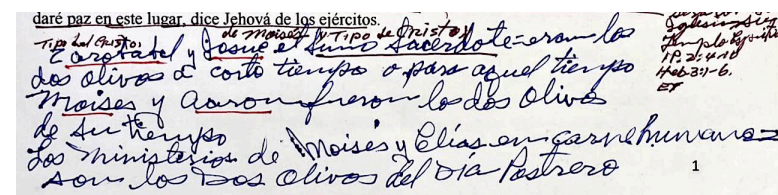 daré paz en este lugar, dice Jehová de los ejércitos.
Tipo del Cristo: de Moisés y Tipo de Cristo
Zorobabel y Josue el Sumo Sacerdote = eran los
dos olivos a corto tiempo o para aquel tiempo
Moises y Aaron fueron los dos Olivos
de su tiempo
Los Ministerios de Moisés y Elías en carne humana =
son los Dos Olivos del Día Postrero
1
Templo
1P. 2:4-10
Heb 3:1-6.